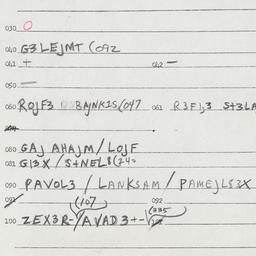 030 O
040 G3LEJMT (092
041 + 042 -
050 -
060 ROJF3 BAJNK1S/047 061 R3F1,3 S+3LA
080 GAJ AHAJM / LOJF
081 G13X / S+NEL8(240
090 PAVOL3 / LANKSAM / PAMEJLS3X
091 (107) 092 (335
100 ZEX3R-/AVAD3+-